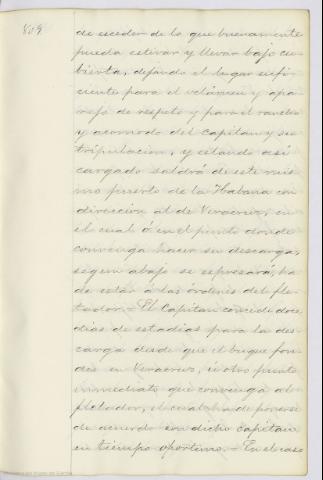 809
de esceder de lo que buenamente
pueda estivar y llevar bajo cu-
bierta, dejando el lugar sufi-
ciente para el velámen y apa-
rejo de respeto y para el rancho
y acomodo del capitan y su
tripulacion, y estando asi
cargado saldrá de este mis-
mo puerto de la Habana con
direccion al de Veracruz, en
el cual ó en el punto donde
convenga hacer su descarga,
segun abajo se espresará, ha
de estar á las órdenes del fle-
tador.— El Capitan concede doce
dias de estadias para la des-
carga desde que el buque fon-
dée en Veracruz, ú otro punto
inmediato que convenga al
fletador, el cual ha de ponerse
de acuerdo con dicho capitan
en tiempo oportuno.— En el caso